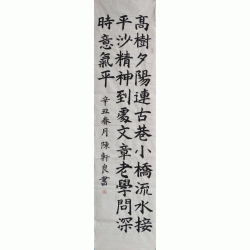 高樹夕陽連古巷小橋流水接
平沙精神到處文章老學問深
時意氣平
辛丑春月陳軒良書